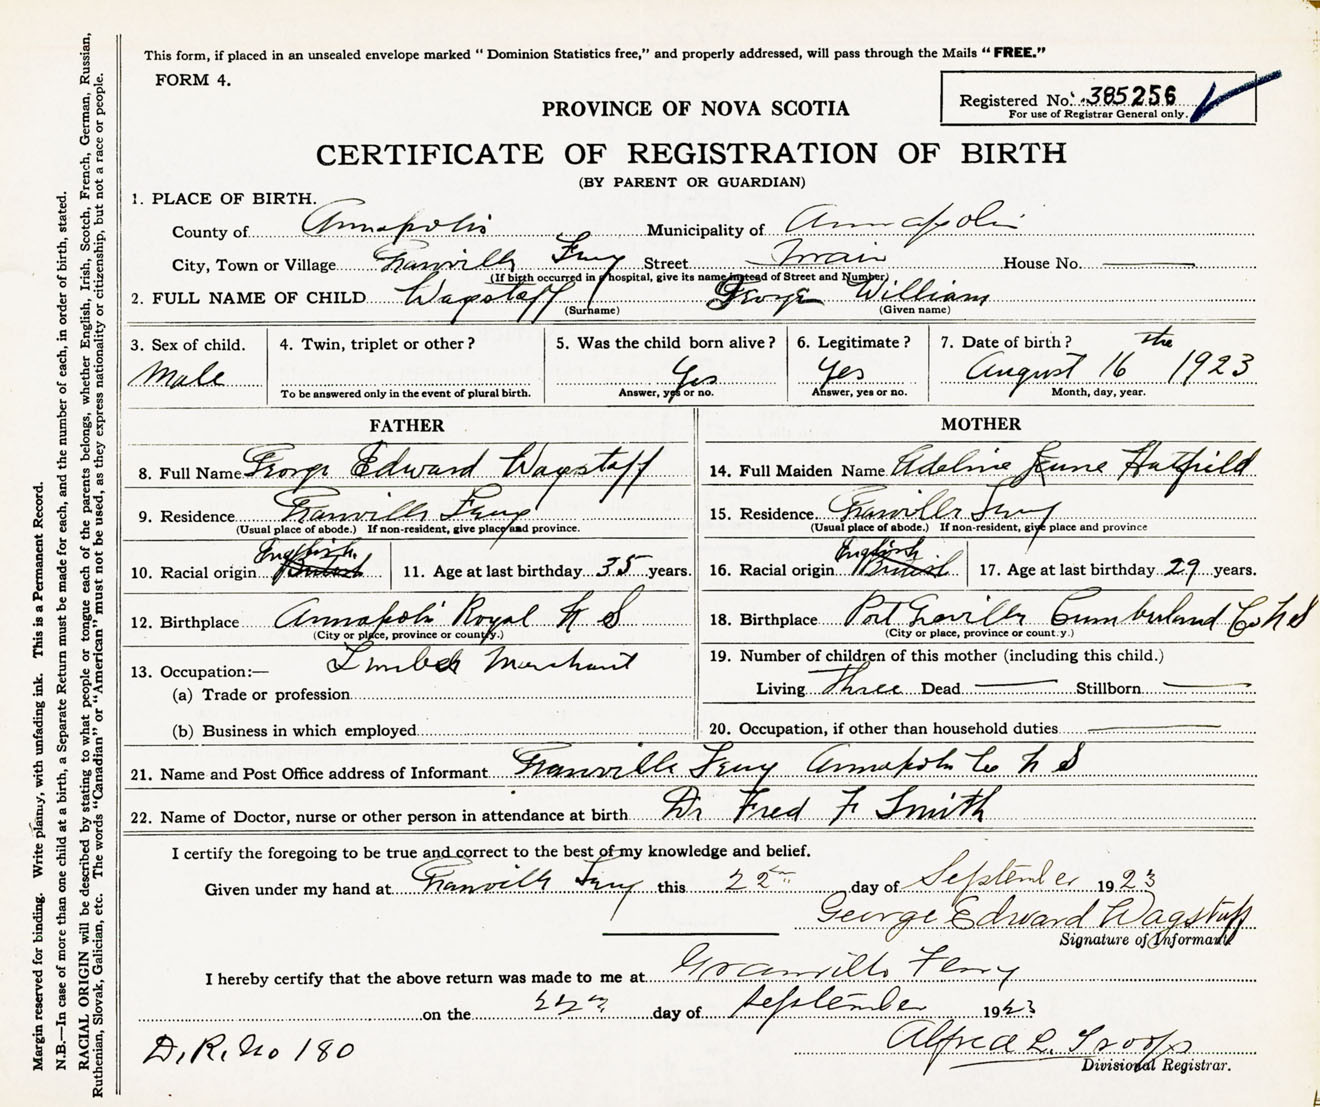 This form, if placed in an unsealed envelope marked “ Dominion Statistics free,” and properly addressed, will pass through the Mails “ FREE.”
FORM 4.
Registered No. 385256
For use of Registrar General only.
PROVINCE OF NOVA SCOTIA
CERTIFICATE OF REGISTRATION OF BIRTH
(BY PARENT OR GUARDIAN)
1. PLACE OF BIRTH.
County of Annapolis Municipality of Annapolis
City, Town or Village Granville Ferry Street Main House No.
(If birth occurred in hospital, give its name instead of Street and Number)
2. FULL NAME OF CHILD Wagstaff George William
(Surname) (Given name)
3. Sex of child. Male
4. Twin, triplet or other ?
To be answered only in the event of plural birth.
5. Was the child born alive ? Yes
Answer, yes or no.
6. Legitimate ? Yes
Answer, yes or no.
7. Date of birth ? August 16 the 1923
Month, day, year.
FATHER
8. Full Name George Edward Wagstaff
9. Residence Granville Ferry
(Usual place of abode.) If non-resident, give place and province.
10. Racial origin English British 11. Age at last birthday 35 years.
12. Birthplace Annapolis Royal N S
(City or place, province or county.)
13. Occupation:— Lumber Merchant
(a) Trade or profession
(b) Business in which employed
MOTHER
14. Full Maiden Name Adeline Hatfield
15. Residence Granville Ferry
(Usual place of abode.) If non-resident, give place and province
16. Racial origin English British 17. Age at last birthday 29 years.
18. Birthplace Port Greville Cumberland Co N S
(City or place, province or county.)
19. Number of children of this mother (including this child.)
Living Three Dead Stillborn
20. Occupation, if other than household duties
21. Name and Post Office address of Informant Granville Ferry Annapolis Co N S
22. Name of Doctor, nurse or other person in attendance at birth Dr Fred F Smith
I certify the foregoing to be true and correct to the best of my knowledge and belief.
Given under my hand at Granville Ferry this 22nd day of September 1923
George Edward Wagstaff
Signature of Informant
I hereby certify that the above return was made to me at Granville Ferry
on the 22nd day of September 1923
Alfred L. Troop
Divisional Registrar.
D.R. No 180
Margin reserved for binding. Write plainly, with unfading ink. This is a Permanent Record.
N.B.—In case of more than one child at a birth, a Separate Return must be made for each, and the number of each, in order of birth, stated.
RACIAL ORIGIN will be described by stating to what people or tongue each of the parents belongs, whether English, Irish, Scotch, French, German, Russian,
Ruthenian, Slovak, Galician, etc. The words “Canadian” or “American” must not be used, as they express nationality or citizenship, but not a race or people.